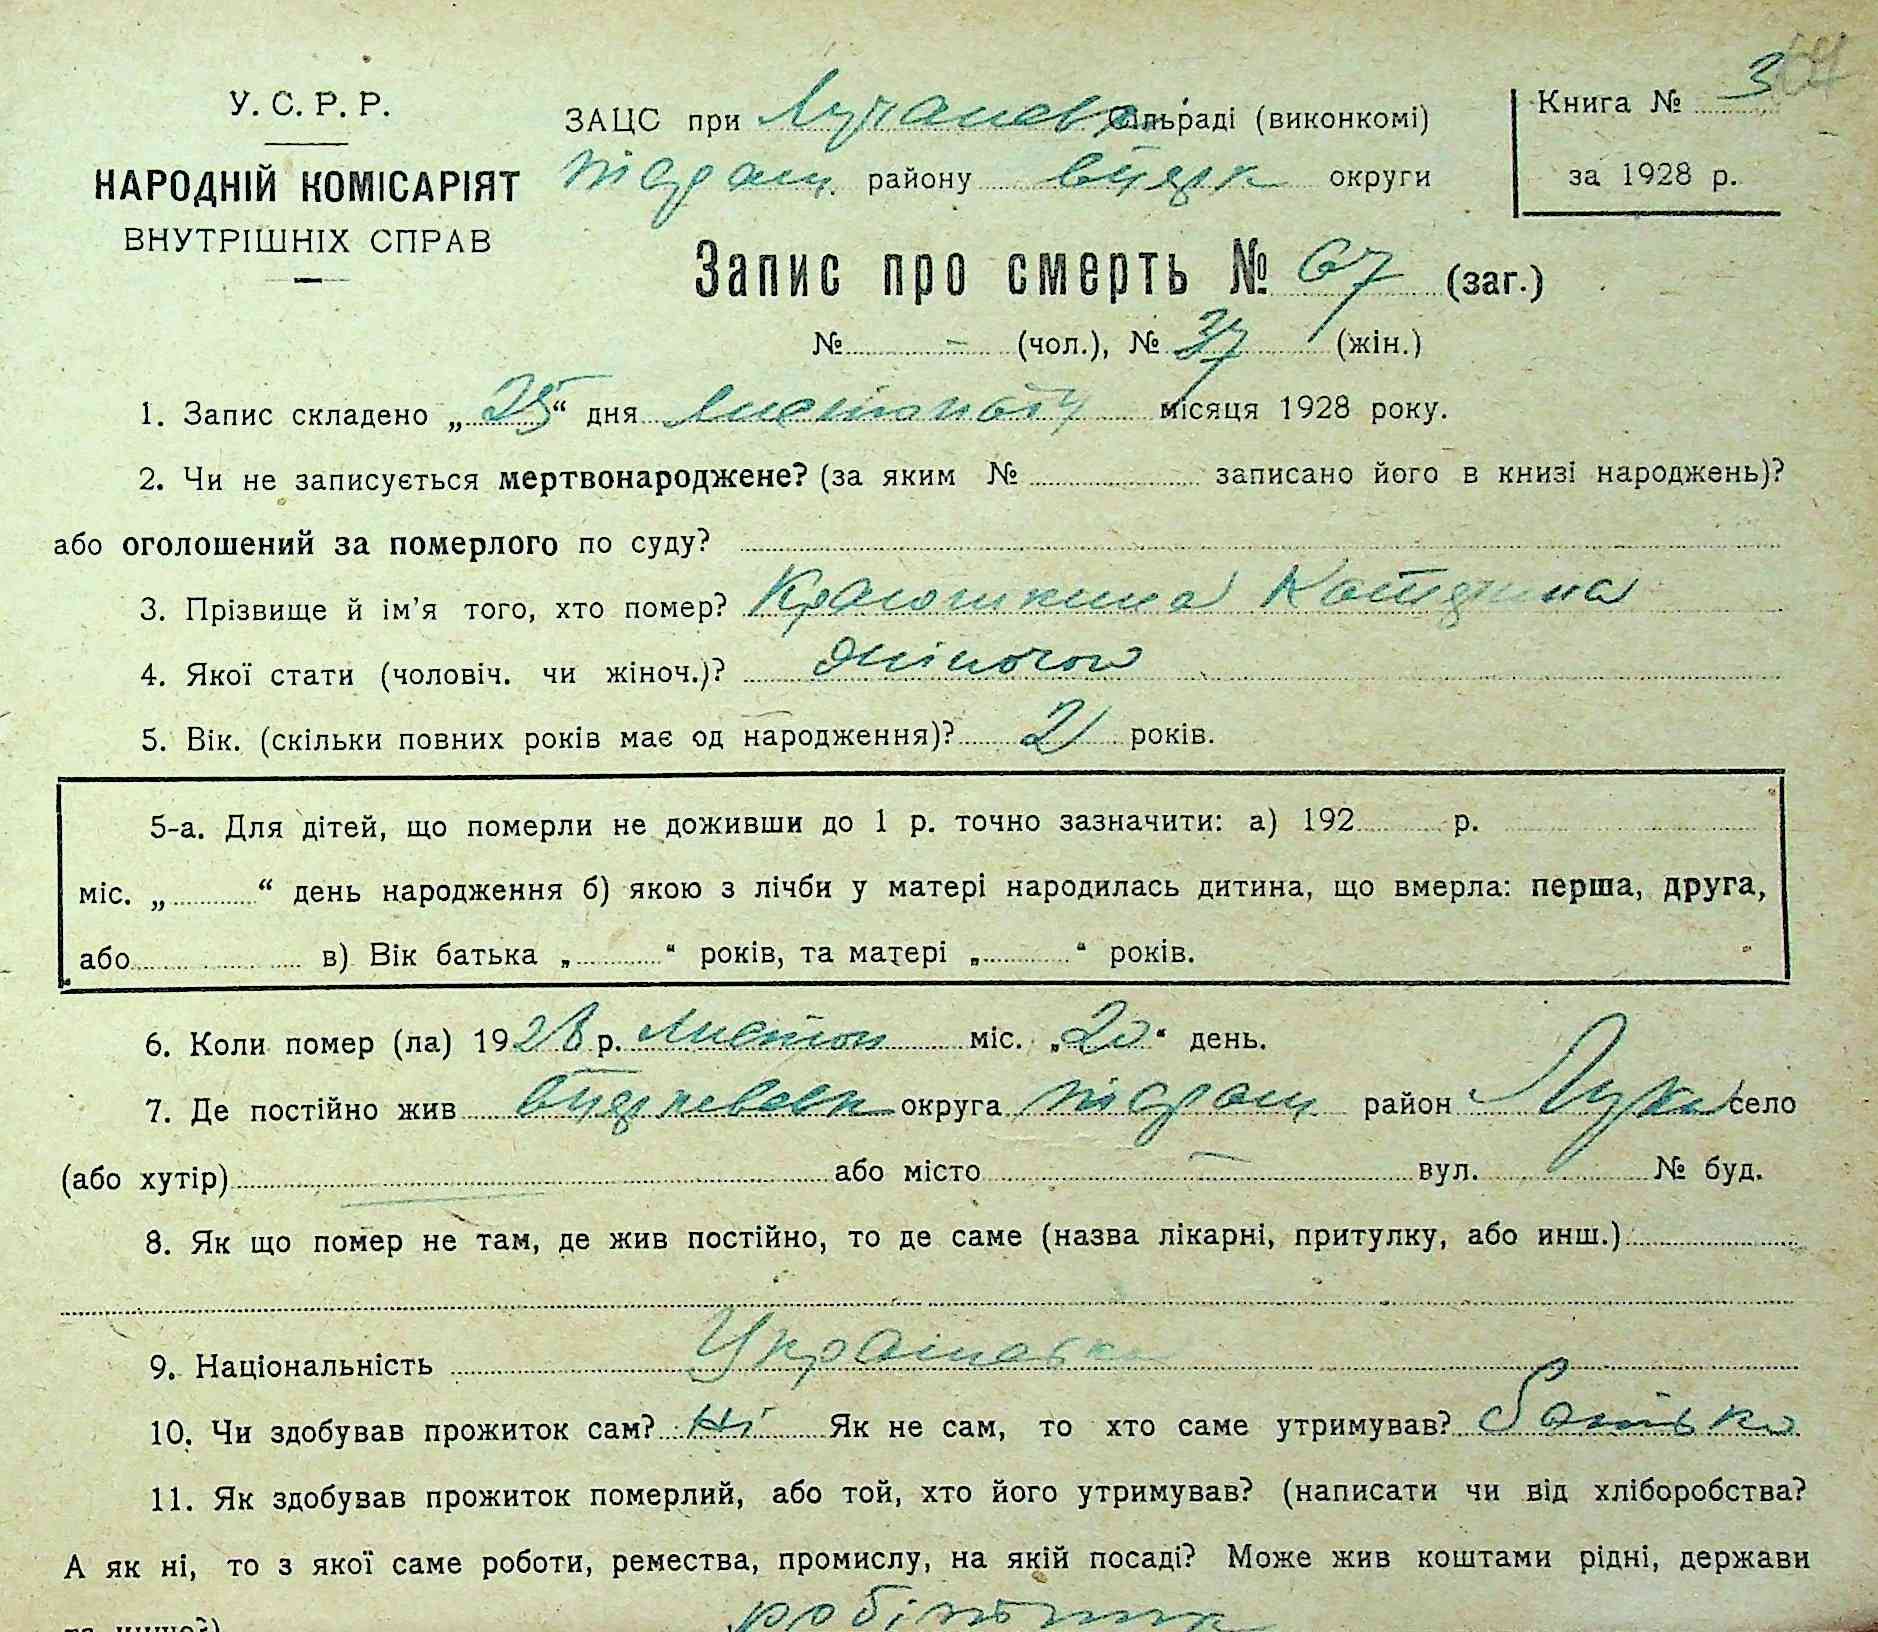 У. С. Р. Р.
НАРОДНІЙ КОМІСАРІЯТ
ВНУТРІШНІХ СПРАВ
ЗАЦС при Сільраді (виконкомі)
району округи
Книга № 3
за 1928 р.
Запис про смерть № 67 (заг.)
№ - (чол.), № 37 (жін.)
1. Запис складено „25“ дня листопаду місяця 1928 року.
2. Чи не записується мертвонароджене? (за яким № записано його в книзі народжень)?
або оголошений за померлого по суду?
3. Прізвище й ім'я того, хто помер? Краюшкина Катерина
4. Якої стати (чоловіч. чи жіноч.)? жіночою
5. Вік. (скільки повних років має од народження)? 2 років.
5-а. Для дітей, що померли не доживши до 1 р. точно зазначити: а) 192 р.
міс. „ “ день народження б) якою з лічби у матері народилась дитина, що вмерла: перша, друга,
або в) Вік батька „ “ років, та матері „ “ років.
6. Коли помер (ла) 1928 р. листоп міс. „20“ день.
7. Де постійно жив округа район Лука село
(або хутір) або місто — вул. № буд.
8. Як що помер не там, де жив постійно, то де саме (назва лікарні, притулку, або инш.)
9. Національність Українка
10. Чи здобував прожиток сам? Ні Як не сам, то хто саме утримував? батько
11. Як здобував прожиток померлий, або той, хто його утримував? (написати чи від хліборобства?
А як ні, то з якої саме роботи, ремества, промислу, на якій посаді? Може жив коштами рідні, держави
та инше?) робітник